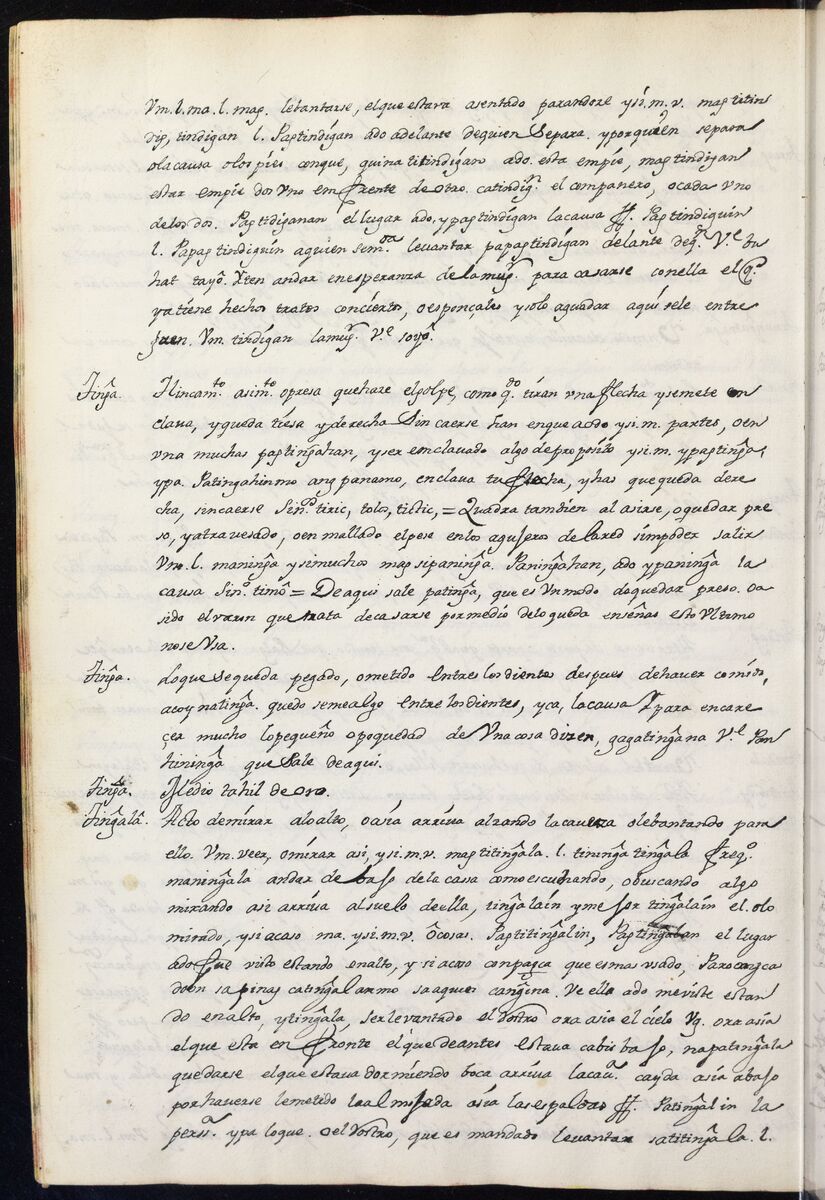 Vm. l. ma. l. mag. lebantarse, el que estava asentado parandose y si. m. v. mag titin
dig, tindigan l. Pagtindigan ado adelante de quien se para, y por quien se para
o la causa o los pies con que, quinatitindigan ado esta empie, mag tindigan
estar empie dos uno em frente de otro. catindign. el companero, o cada uno
de los dos. Pagtidiganan el lugar ado, y pagtindigan la causa ff. Pagtindiguin
l. Papagtindiguin a quien se m.da levantar papagtindigan delante deq.n V.e ba
hat tayo. Xten andar en esperanza de la mug.r para casarse con ella el q.e
ya tiene hechos tratos concierto, o esponçales y solo aguadar aqui se le entre
guen. Vm. tindigan la mug.r V.e soyo.
Tinga. Hincam.to asim.to o presa que haze el golpe, como q.do tiran una flecha y se mete en
clava, y queda tiesa y derecha sin caerse han en que acodo y si. m. partes, o en
una muchas pagtingahan, y ser enclavado algo de proposito y si. m. ypagtinga,
ypa. Patingahinmo ang panamo, enclava tu flecha, y has que queda dere
cha, sin caerse Sin.o tiric, tolos, tictic, = Quadra tambien al asirse, o quedar pre
so, y atravesado, o en mallado el pese en los agujero de la red sim poder salir
Vm. l. maninga y si muchos mag sipaninga. Paningahan, ado y paninga la
causa Sin.o timo = De aqui sale patinga, que es un modo de quedar preso. o a
sido el varon que trata de casarse por medio de lo queda enseñas esto ultimo
no se usa.
Tinga. Lo que se queda pegado, o metido entre los dientes despues de haver comido,
acoy natinga. quedo seme algo entre los dientes, y ca, la causa Y para encare
çer mucho lo pequeño o poquedad de una cosa dizen, gagatinga na V.e Pan
hininga que sale de aqui.
Tinga. Medio tahil de oro.
Tingala. Acto de mirar alo alto, o asia arriva alzando la caveza o lebantando para
ello. Vm. veer, o mirar asi, y si. m. v. mag titingala. l. tininga tingala Freq.o
maningala andar de bajo de la casa como escuchando, o buscando algo
mirando asi arriva al suelo de ella, tingalain y mejor tingalain el. o lo
mirado, y si acaso ma. y si. m. v. o cosas. Pagtitingalin, Pagtingalan el lugar
ado fue visto estando en alto, y si acaso con pagca que es mas usado, Paroongca
doon sa pinag catingalanmo sa aquei cangina. Ve ella ado me viste estan
do en alto, y tingala, ser levantado el rostro ora asia el cielo Vg. ora asia
el que esta en fronte el que de antes estava cabisbajo, napatingala
quedarse el que estava dormiendo boca arriva la cav.a cayda asia abajo
por haverse le metido la almojada asia las espaldas ff. Patingalin la
pers.a y pa lo que. o el rostro, que es mandado levantar satitingala. l.